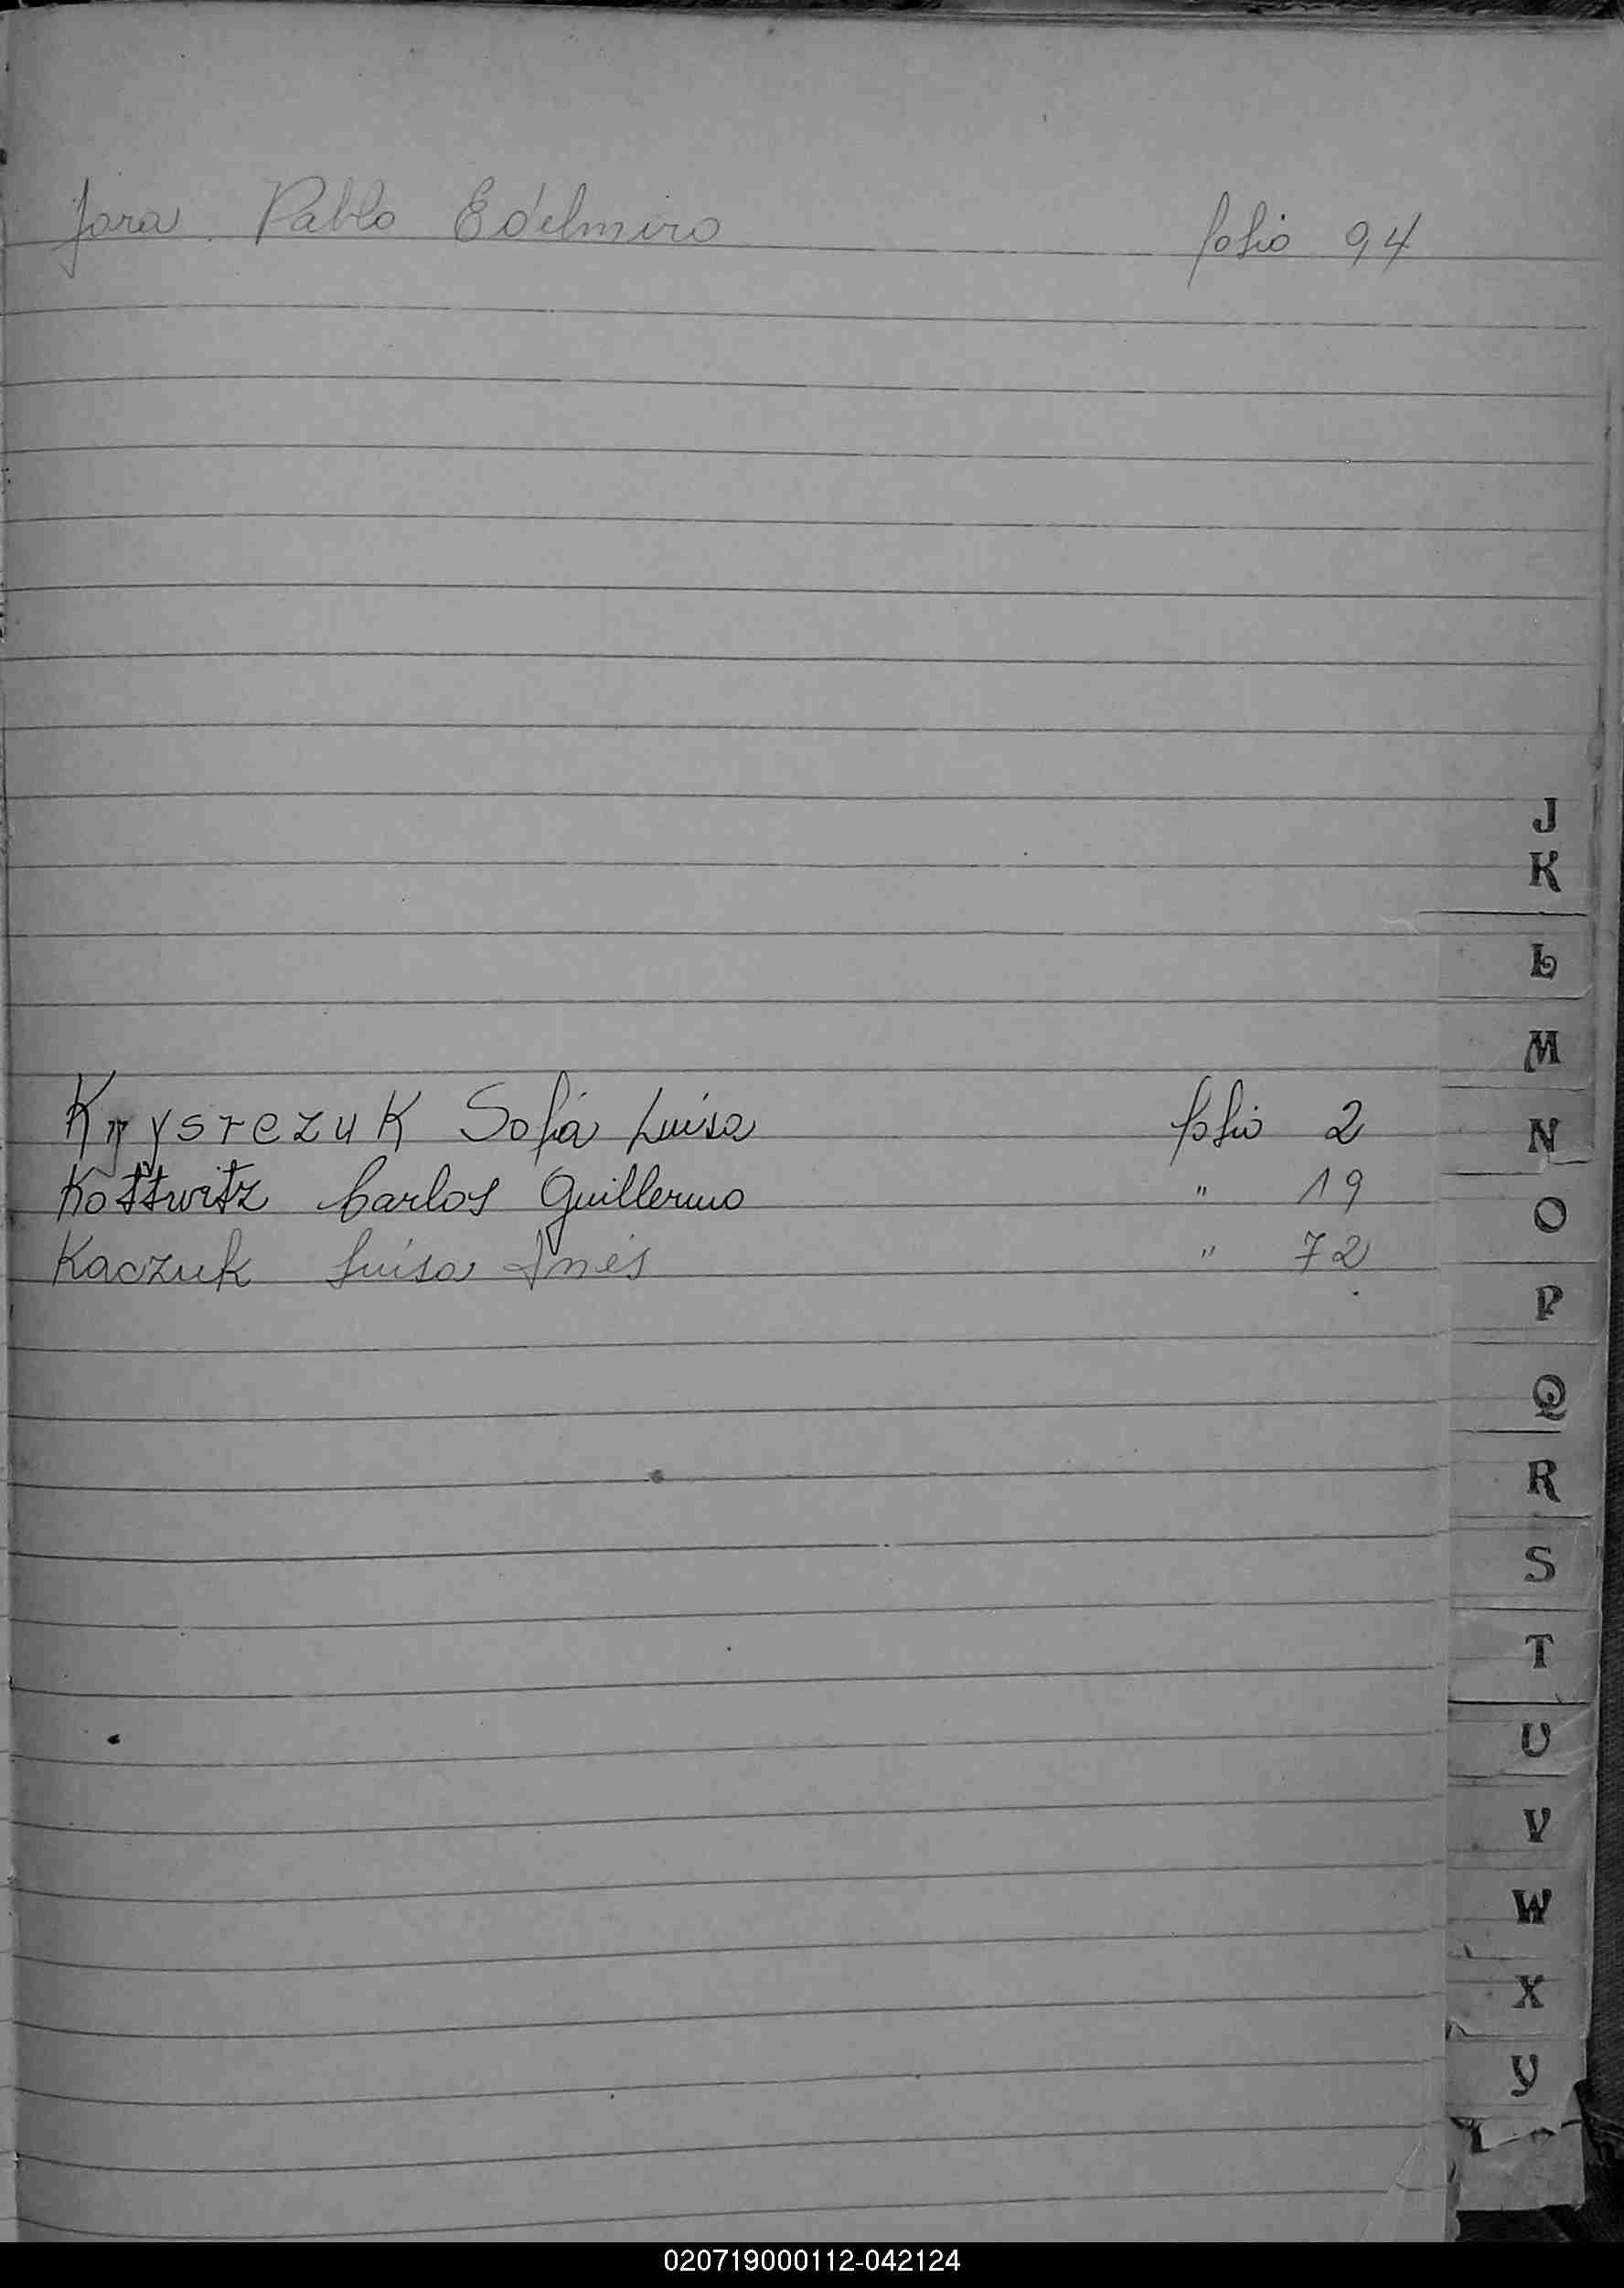 Jara Pablo Edelmiro folio 94
J
K
L
M
Krysrezuk Sofia Luisa folio 2
N
Kottwitz Carlos Guillermo " 19
O
Kaczuk Luisa Inés " 72
P
Q
R
S
T
U
V
W
X
Y
020719000112-042124